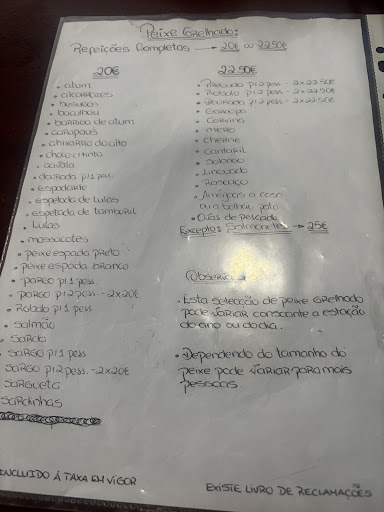 Peixe Grelhado:
Refeições Completas → 20€ ou 22.50€
20€
• atum
• besugos
• bacalhau
• barriga de atum
• carapaus
• chicharro do alto
• choco c/ tinta
• corvina
• dourada p/1 pess
• espadarte
• espetada de lulas
• espetada de tamboril
• Lulas
• massacotes
• peixe espada preto
• peixe espada branco
• pargo p/1 pess
• pargo p/2 pess - 2x20€
• Robalo p/1 pess
• salmão
• sarda
• SARGO p/1 pess
SARGO p/2 pess. - 2x20€
SARGUETA
sardinhas
22.50€
• p/2 pess - 2x22.50€
• Robalo p/2 pess - 2x22.50€
• Dourada p/2 pess - 2x22.50€
• Garoupa
• Corvina
• mero
• cherne
• cantaril
• Linguado
• Ameijoas a casa
• Ovas de pescada
Exceptos: Salmonetes → 25€
• Esta selecção de peixe grelhado
pode variar consoante a estação
do ano ou do dia.
• Dependendo do tamanho do
peixe pode variar para mais
pessoas
INCLUIDO Á TAXA EM VIGOR
EXISTE LIVRO DE RECLAMAÇÕES